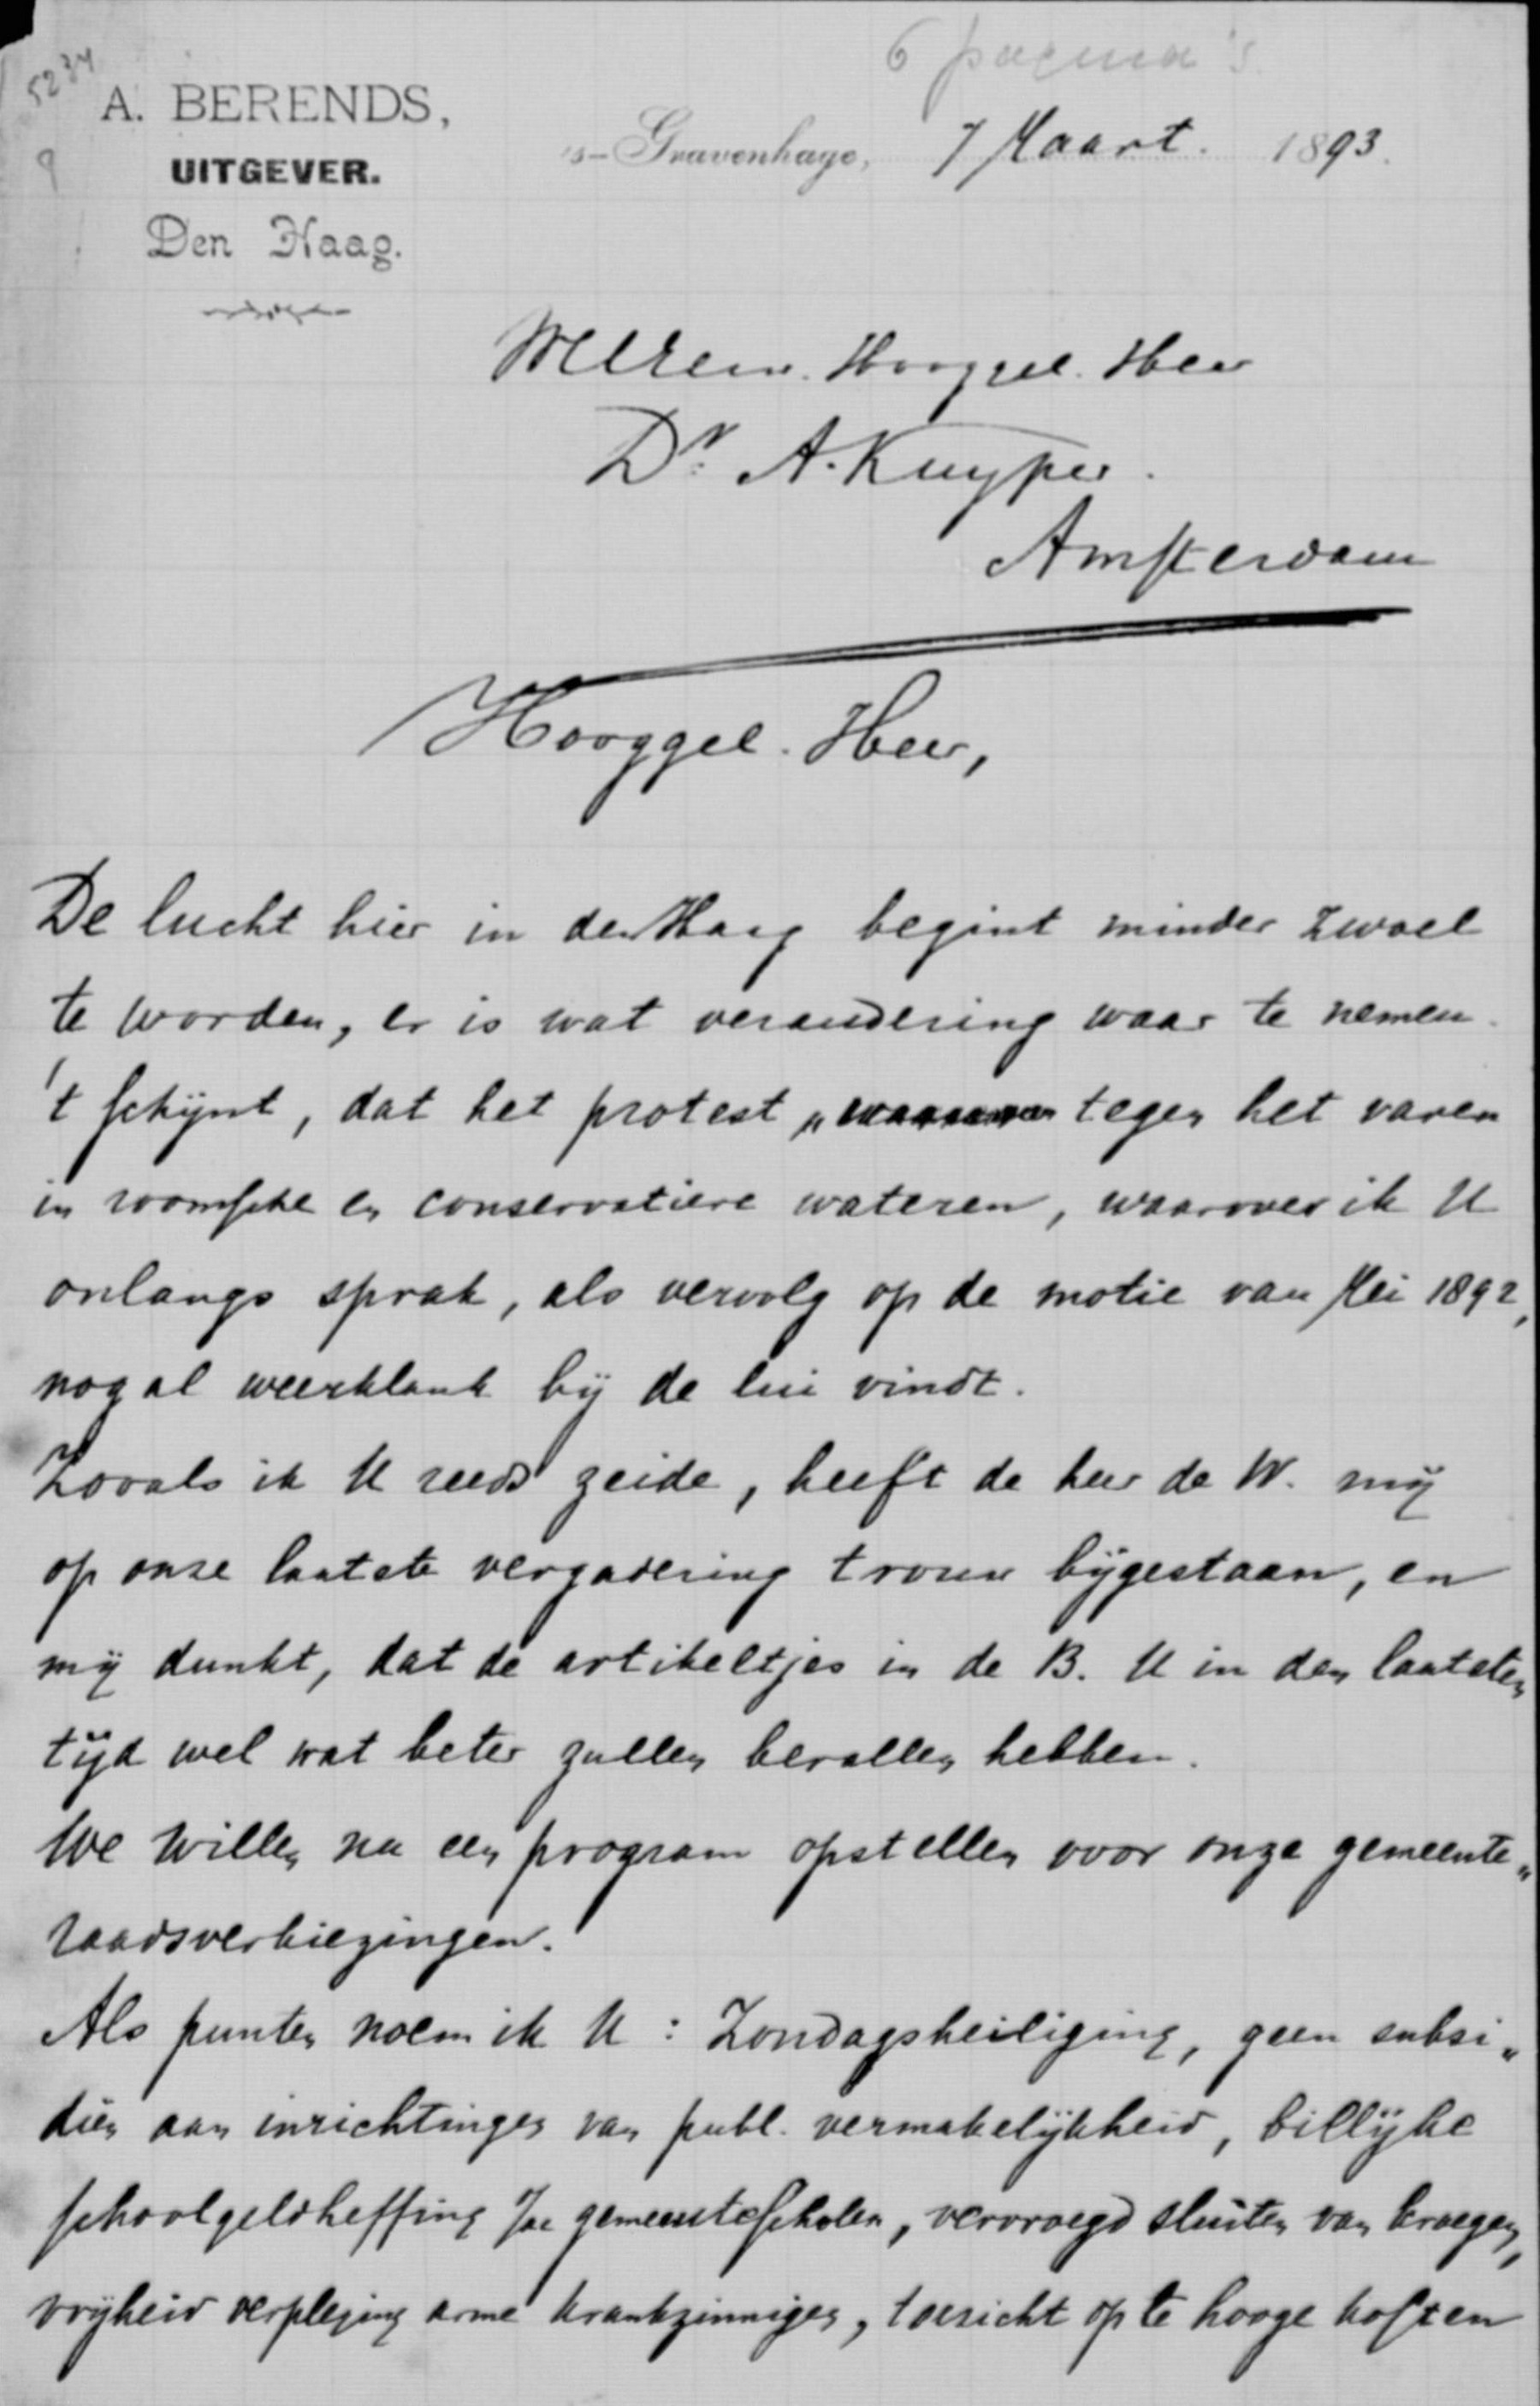 6 pagina's
5234
9
A. BERENDS,
UITGEVER.
Den Haag.
's-Gravenhage, 7 Maart. 1893.
WelEerw. Hooggel. Heer
Dr. A. Kuyper.
Amsterdam
Hooggel. Heer,
De lucht hier in den Haag begint minder zwoel
te worden, er is wat verandering waar te nemen.
't schijnt, dat het protest „ tegen het varen
in roomsche en conservatieve wateren, waarover ik U
onlangs sprak, als vervolg op de motie van Mei 1892,
nogal weerklank bij de lui vindt.
Zooals ik U reeds zeide, heeft de heer de W. mij
op onze laatste vergadering trouw bijgestaan, en
mij dunkt, dat de artikeltjes in de B. U in den laatsten
tijd wel wat beter zullen bevallen hebben.
We willen nu een program opstellen voor onze gemeente„
raadsverkiezingen.
Als punten noem ik U : Zondagsheiliging, geen subsi„
diën aan inrichtingen van publ. vermakelijkheid, billijke
schoolgeldheffing gemeentescholen, vervroegd sluiten van kroegen,
vrijheid verpleging arme krankzinnigen, toezicht op te hooge kosten